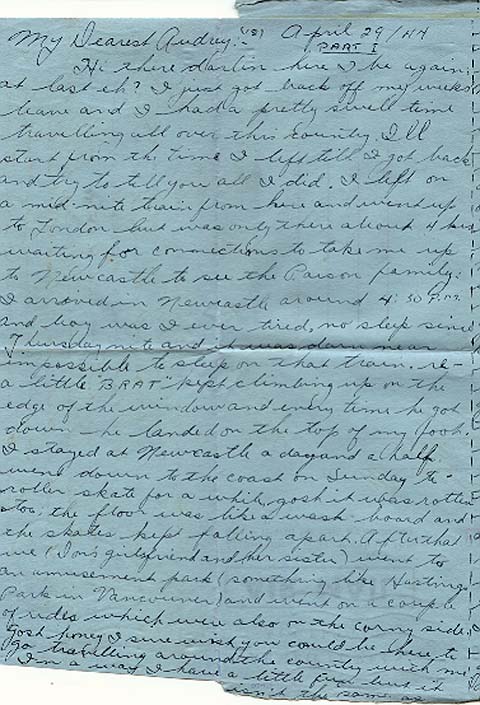 My Dearest Audrey:- (8) April 29/44
PART I
Hi there darlin here I be again
at last eh? I just got back off my weeks
leave and I had a pretty swell time
travelling all over this country I'll
start from the time I left till I got back
and try to tell you all I did. I left on
a mid-nite train from here and went up
to London but was only there about 4 hrs
waiting for connections to take me up
to Newcastle to see the Parson family:
I arroved in Newcastle around 4:30 P.M.
and boy was I ever tired, no sleep since
Thursday nite and it was down near
impossible to sleep on that train.
a little "BRAT" kept climbing up on the
edge of the window and every time he got
down he landed on the top of my foot.
I stayed at Newcastle a day and a half
went down to the coast on Sunday to
roller skate for a while, gosh it was rotten
too, the floor was like a wash board and
the skates kept falling apart. After that
we (Don's girlfriend and her sister) went to
an amusement park (something like Hastings
Park in Vancouver) and went on a couple
of rides which were also on the corny side.
Gosh honey I sure wish you could be here to
go travelling around the country with me
I'm a way I have a little fun but it
isn't the same as